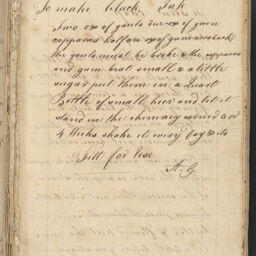 To make black Ink
Two oz of gauls one oz of green
copperas half an oz of gum araback
the gauls must be broke & the copperas
and gum beat small & a little
sugar put them in a Quart
Bottle of small beer and let it
stand in the chimney corner 3 or
4 Weeks shake it every Day &
fitt for use
A-G